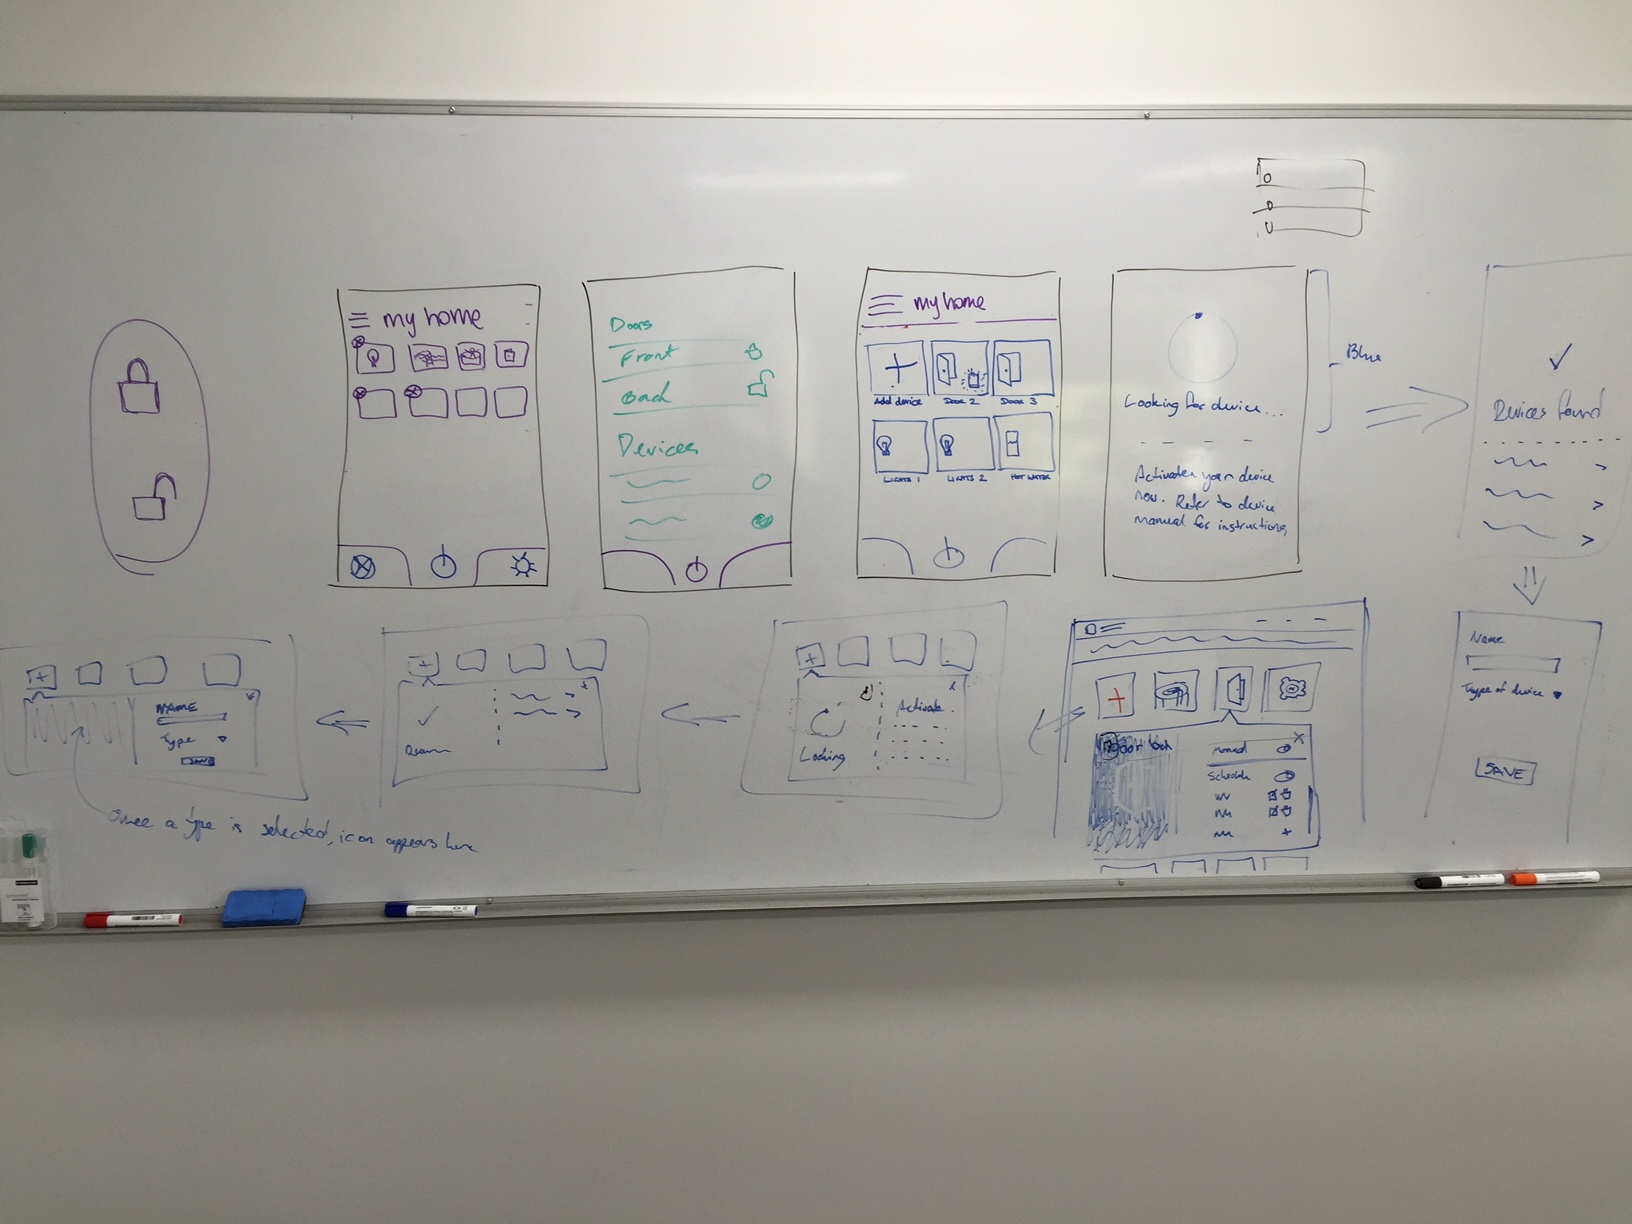 my home
Doors
Front
Back
Devices
my home
Add device
Door 2
Door 3
LIGHTS 1
LIGHTS 2
HOT WATER
Looking for device...
Activate your device
now. Refer to device
manual for instructions
Blue
Devices found
Name
Type of device
SAVE
Door lock
Manual
Schedule
Looking
Activate
NAME
Type
SAVE
Once a type is selected, icon appears here